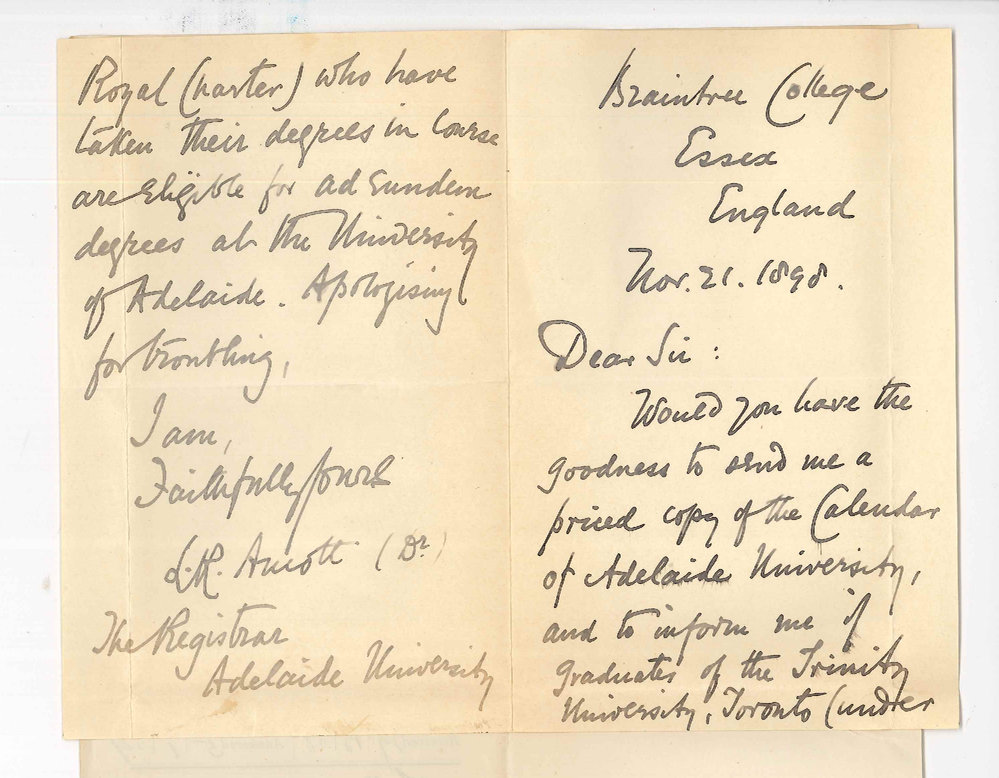 Braintree College
Essex
England
Nov. 21. 1898.
Dear Sir:
Would you have the
goodness to send me a
priced copy of the Calendar
of Adelaide University,
and to inform me if
graduates of the Trinity
University, Toronto (under
Royal Charter) who have
taken their degrees in Course
are eligible for ad Eundem
degrees at the University
of Adelaide. Apologising
for troubling,
I am,
Faithfully yours
L.R. (Dr)
The Registrar
Adelaide University